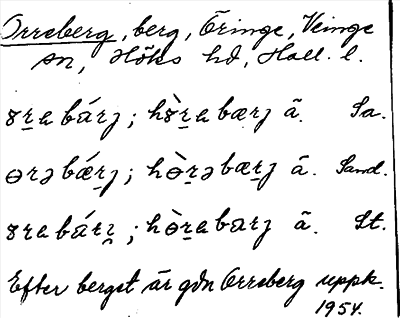 Orreberg, berg, Öringe, Veinge
sn, Höks hd, Hall. l.
ɤrabárȷ; hɤ̀rabærȷ ã. Sa.
ɵrəbǽrȷ; hɵ̀rəbærȷ ã. Sand.
ɤrabárȷ; hɵ̀rabarȷ ã. St.
Efter berget är gdn Orreberg uppk.
1954.